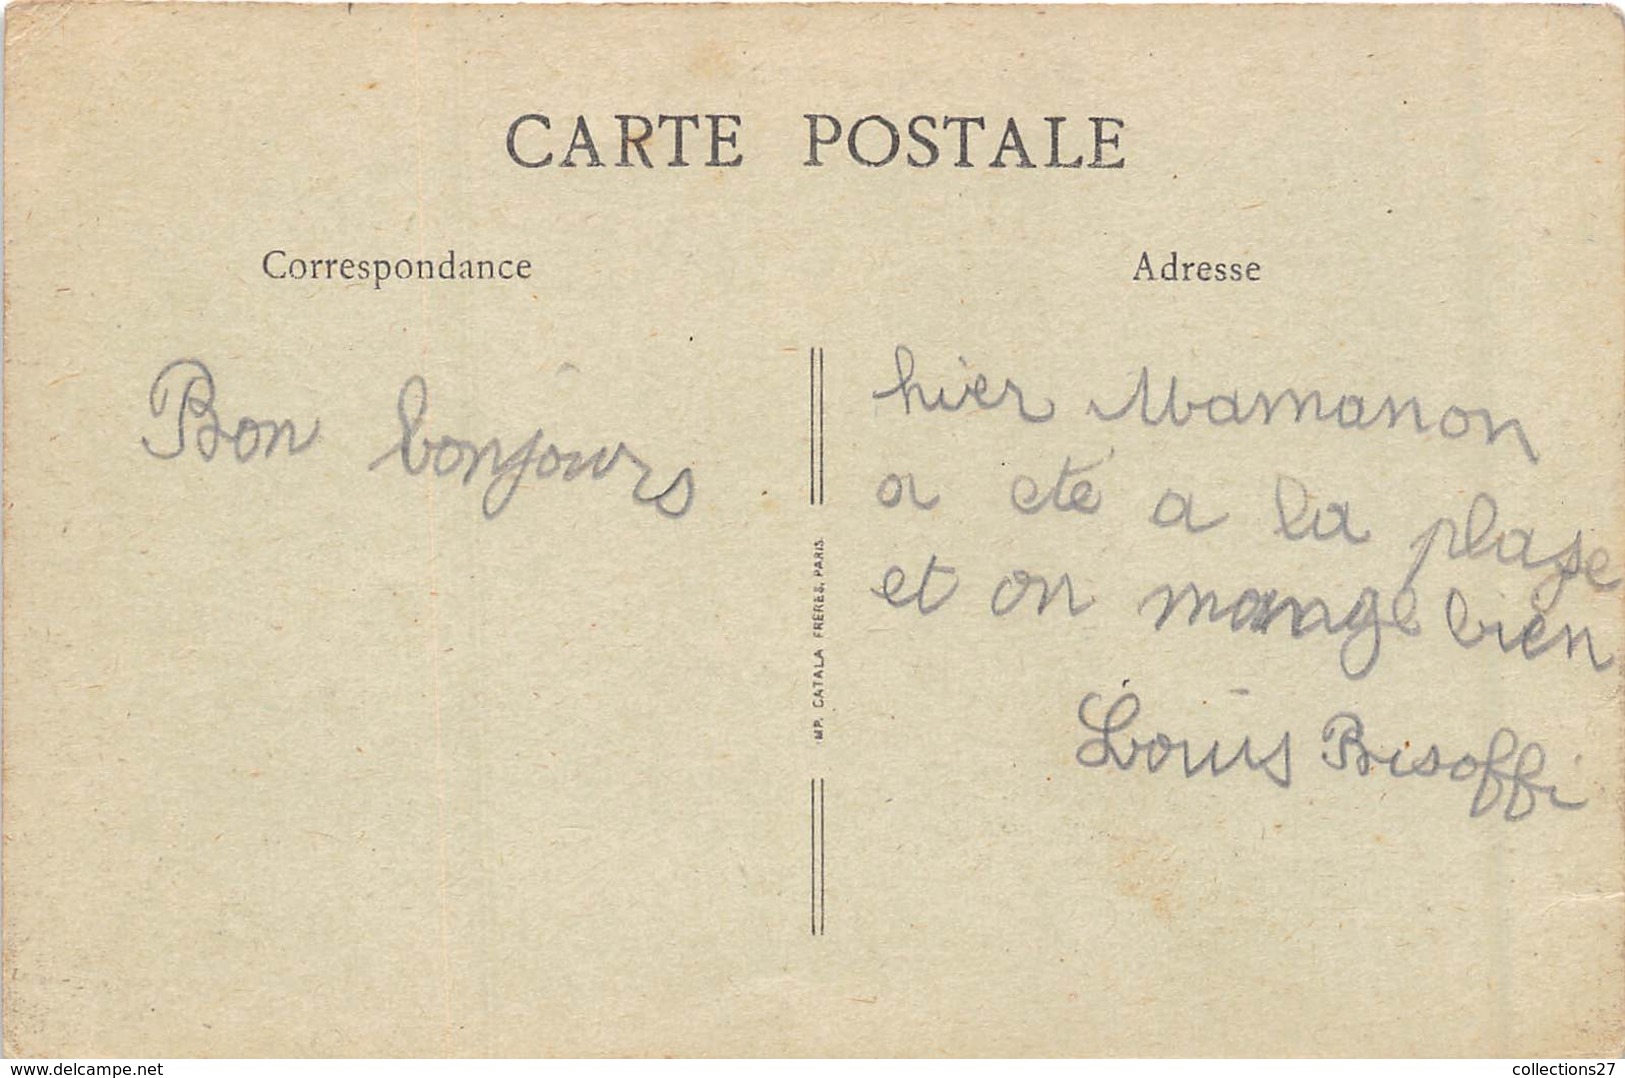 CARTE POSTALE
Correspondance
Adresse
Bon bonjours
hier Mamanon
a eté a la plage
et on mange bien
Louis Bisoffi
IMP. CATALA FRÈRES, PARIS.
www.delcampe.net
collections27